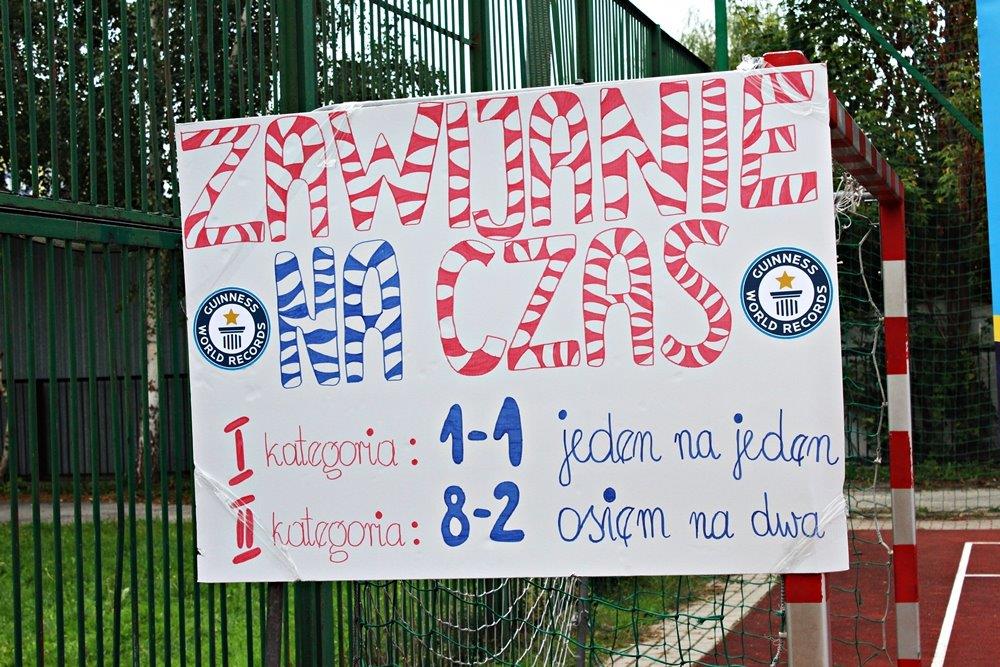 ZAWIJANIE
NA CZAS
GUINNESS
WORLD RECORDS
GUINNESS
WORLD RECORDS
I kategoria: 1-1 jeden na jeden
II kategoria: 8-2 osiem na dwa